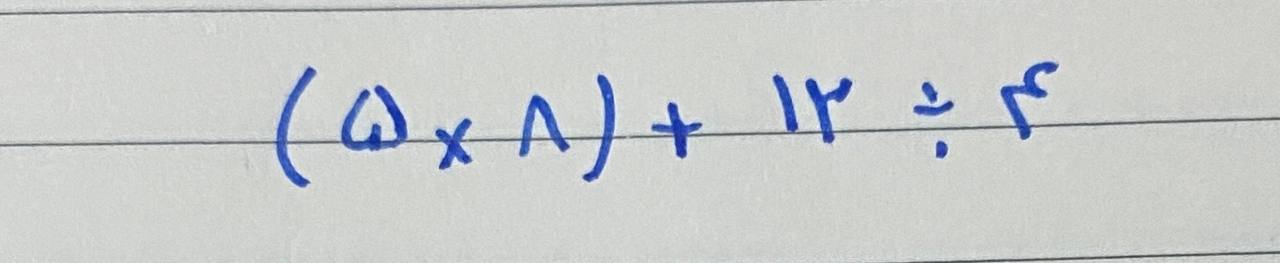 (۵ × ۸) + ۱۲ ÷ ۴